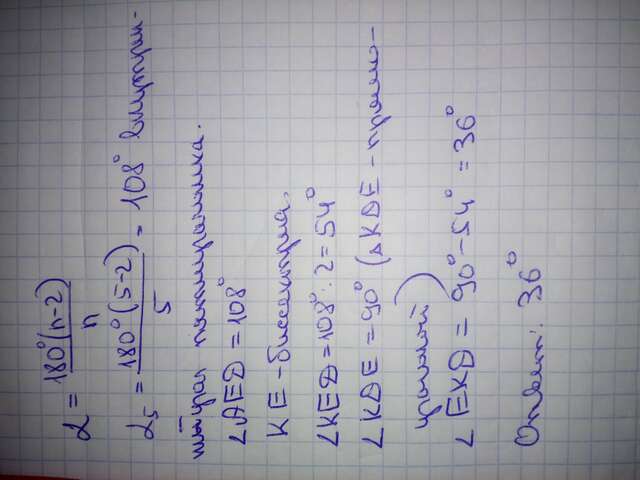 α = 180°(n-2)/n
α₅ = 180°(5-2)/5 = 108° внутрен-
ний угол пятиугольника.
∠AED = 108°
KE - биссектриса.
∠KED = 108° : 2 = 54°
∠KDE = 90° (△KDE - прямо-
угольный)
∠EKD = 90° - 54° = 36°
Ответ: 36°